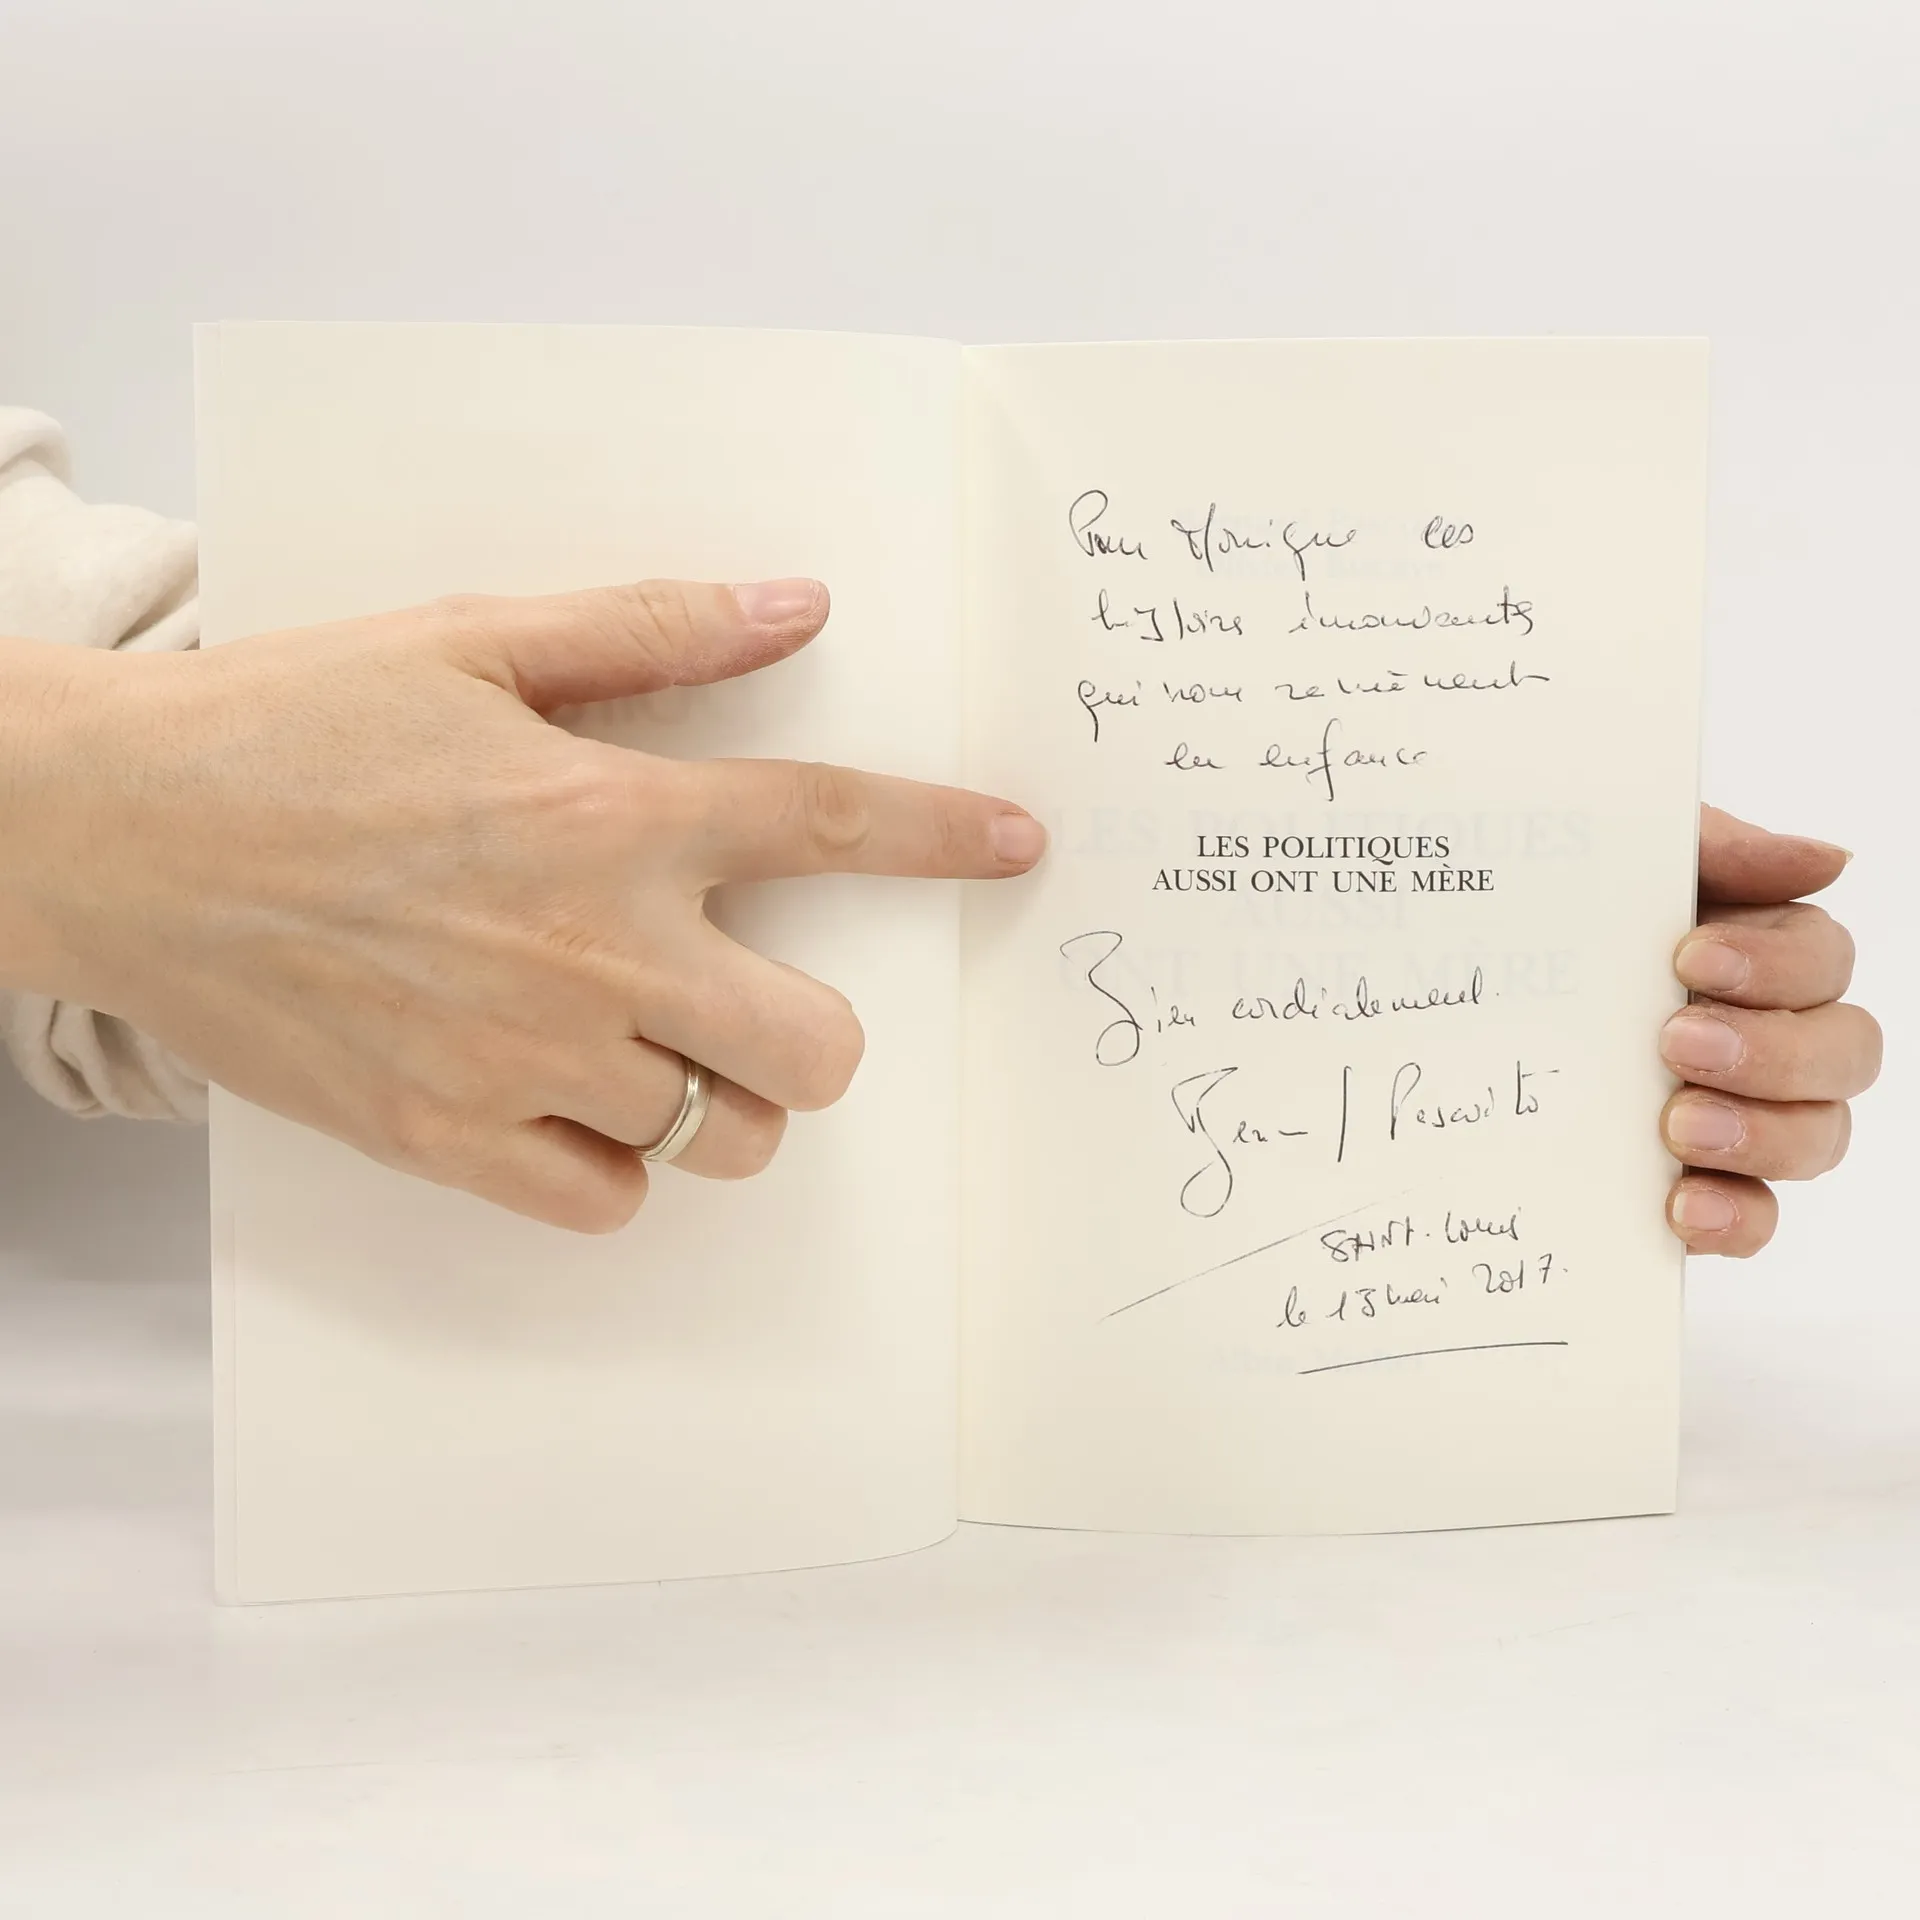 Pour Monique ces
histoires émouvantes
qui nous ramènent
en enfance
LES POLITIQUES
AUSSI ONT UNE MÈRE
Bien cordialement.
Pascuito
SAINT-Louis
le 13 mai 2017.